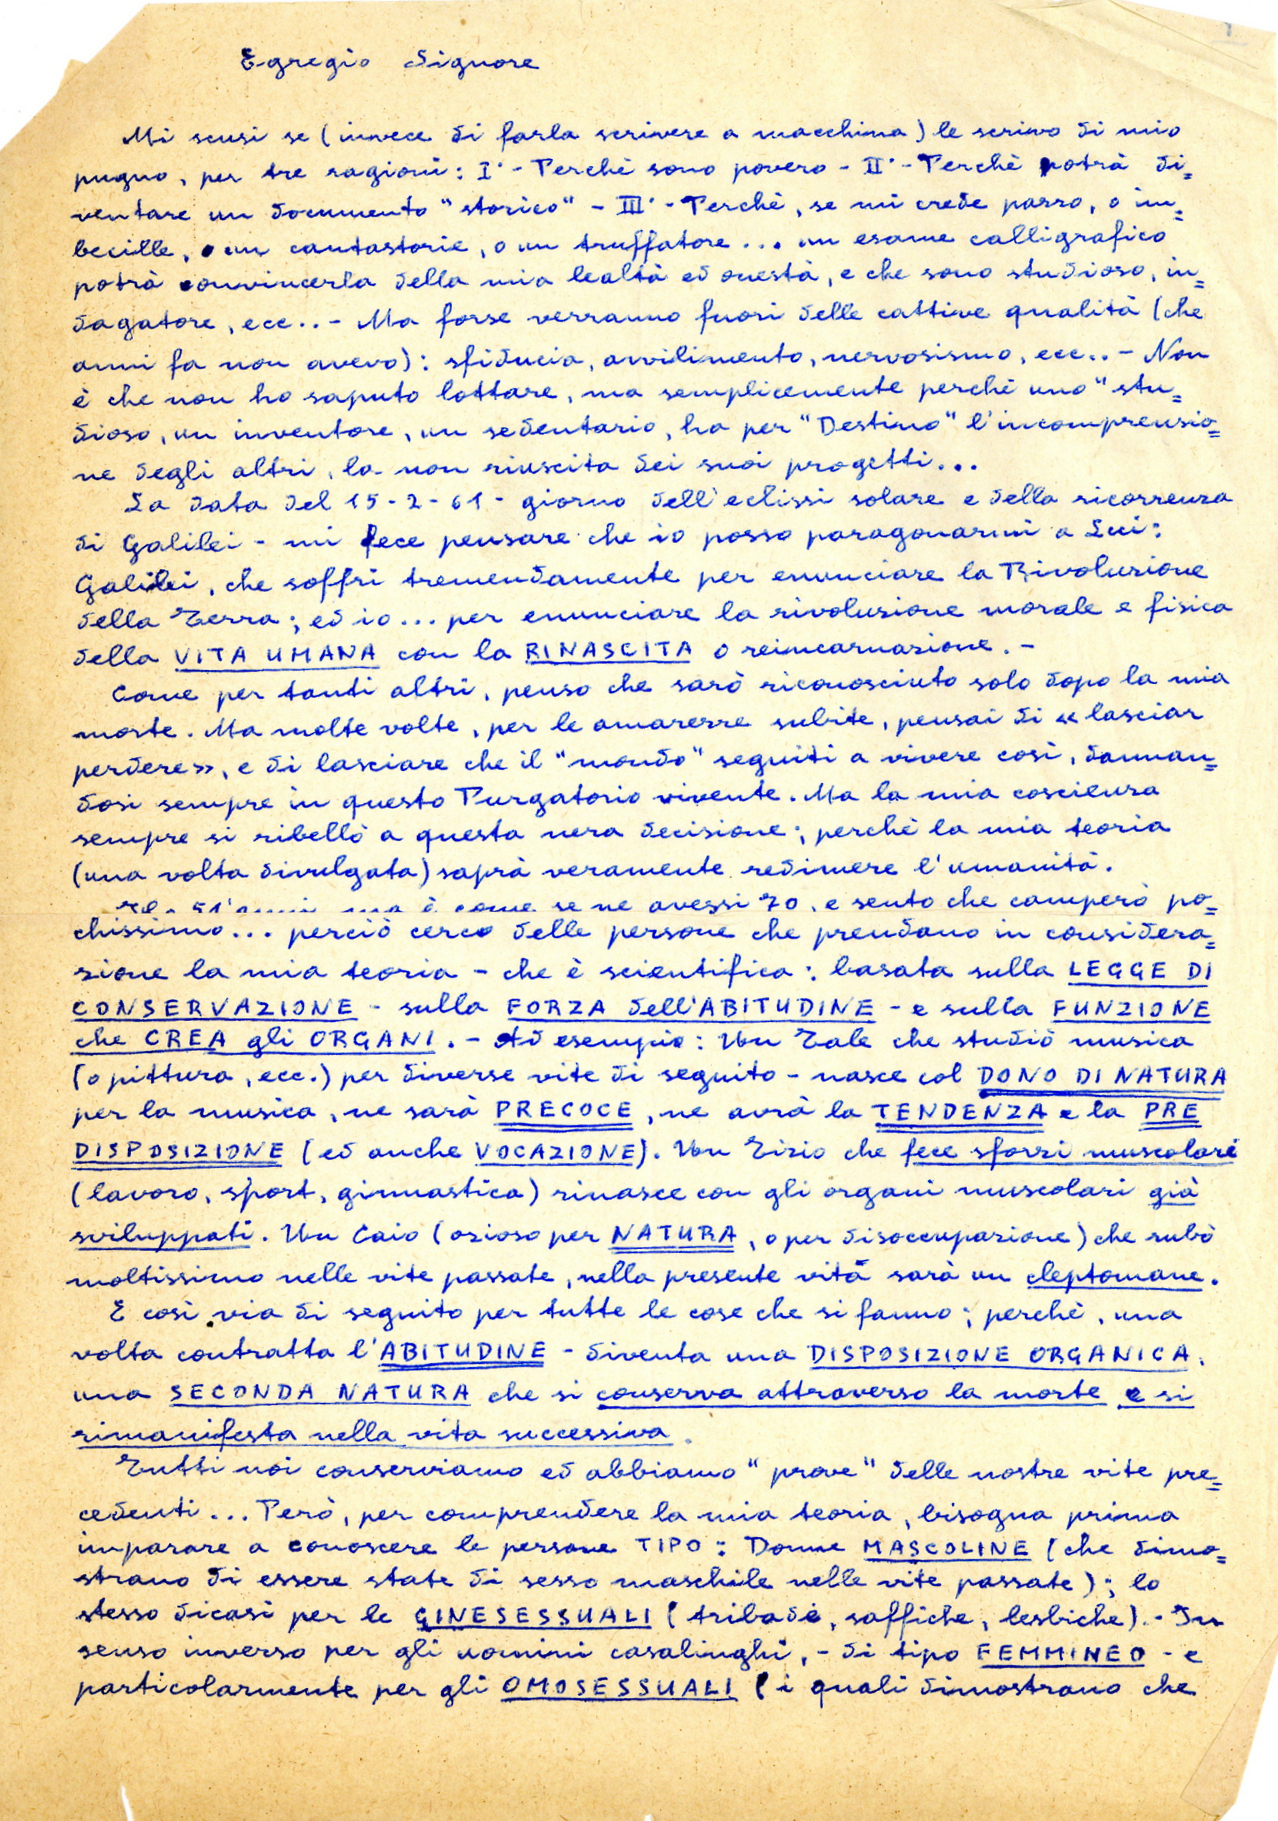 1
Egregio Signore
Mi scusi se (invece di farla scrivere a macchina) le scrivo di mio
pugno, per tre ragioni: I° - Perchè sono povero - II° - Perchè potrà di=
ventare un documento "storico" - III° - Perchè, se mi crede pazzo, o im=
becille, o un cantastorie, o un truffatore... un esame calligrafico
potrà convincerla della mia lealtà ed onestà, e che sono studioso, in=
dagatore, ecc.. - Ma forse verranno fuori delle cattive qualità (che
anni fa non avevo): sfiducia, avvilimento, nervosismo, ecc.. - Non
è che non ho saputo lottare, ma semplicemente perchè uno "stu=
dioso, un inventore, un sedentario, ha per "Destino" l'incomprensio=
ne degli altri, la non riuscita dei suoi progetti...
La data del 15-2-61 - giorno dell'eclissi solare e della ricorrenza
di Galilei - mi fece pensare che io posso paragonarmi a Lui:
Galilei, che soffrì tremendamente per enunciare la Rivoluzione
della Terra; ed io... per enunciare la rivoluzione morale e fisica
della VITA UMANA con la RINASCITA o reincarnazione. -
Come per tanti altri, penso che sarò riconosciuto solo dopo la mia
morte. Ma molte volte, per le amarezze subite, pensai di « lasciar
perdere», e di lasciare che il "mondo" seguiti a vivere così, dannan=
dosi sempre in questo Purgatorio vivente. Ma la mia coscienza
sempre si ribellò a questa nera decisione; perchè la mia teoria
(una volta divulgata) saprà veramente redimere l'umanità.
Ho 51 anni, ma è come se ne avessi 70, e sento che camperò po=
chissimo... perciò cerco delle persone che prendano in considera=
zione la mia teoria - che è scientifica: basata sulla LEGGE DI
CONSERVAZIONE - sulla FORZA dell'ABITUDINE - e sulla FUNZIONE
che CREA gli ORGANI. - Ad esempio: Un Tale che studiò musica
(o pittura, ecc.) per diverse vite di seguito - nasce col DONO DI NATURA
per la musica, ne sarà PRECOCE, ne avrà la TENDENZA e la PRE
DISPOSIZIONE (ed anche VOCAZIONE). Un Tizio che fece sforzi muscolari
(lavoro, sport, ginnastica) rinasce con gli organi muscolari già
sviluppati. Un Caio (ozioso per NATURA, o per disoccupazione) che rubò
moltissimo nelle vite passate, nella presente vita sarà un cleptomane.
E così via di seguito per tutte le cose che si fanno; perchè, una
volta contratta l'ABITUDINE - diventa una DISPOSIZIONE ORGANICA,
una SECONDA NATURA che si conserva attraverso la morte e si
rimanifesta nella vita successiva.
Tutti noi conserviamo ed abbiamo "prove" delle nostre vite pre=
cedenti... Però, per comprendere la mia teoria, bisogna prima
imparare a conoscere le persone TIPO: Donne MASCOLINE (che dimo=
strano di essere state di sesso maschile nelle vite passate); lo
stesso dicasi per le GINESESSUALI (tribade, saffiche, lesbiche). - In
senso inverso per gli uomini casalinghi, - di tipo FEMMINEO - e
particolarmente per gli OMOSESSUALI (i quali dimostrano che